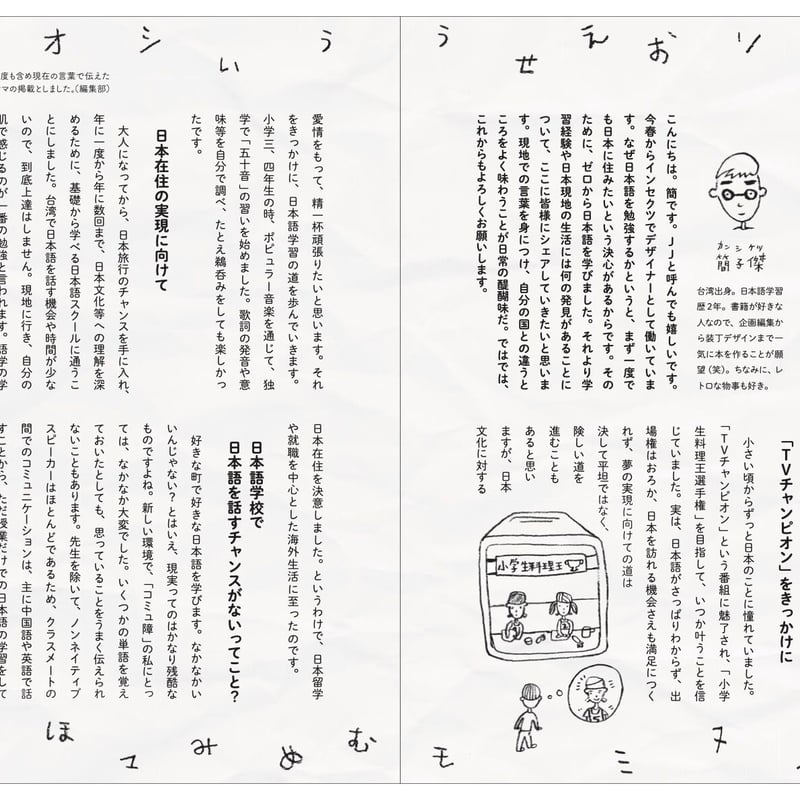 う せ え お リ
カン シ ケツ
簡子傑
台湾出身。日本語学習
歴2年。書籍が好きな
人なので、企画編集か
ら装丁デザインまで一
気に本を作ることが願
望（笑）。ちなみに、レ
トロな物事も好き。
こんにちは。簡です。JJと呼んでも嬉しいです。
今春からインセクツでデザイナーとして働いていま
す。なぜ日本語を勉強するかというと、まず一度で
も日本に住みたいという決心があるからです。その
ために、ゼロから日本語を学びました。それより学
習経験や日本現地の生活には何の発見があることに
ついて、ここに皆様にシェアしていきたいと思いま
す。現地での言葉を身につけ、自分の国との違うと
ころをよく味わうことが日常の醍醐味だ。ではでは、
これからもよろしくお願いします。
「TVチャンピオン」をきっかけに
小さい頃からずっと日本のことに憧れていました。
「TVチャンピオン」という番組に魅了され、「小学
生料理王選手権」を目指して、いつか叶うことを信
じていました。実は、日本語がさっぱりわからず、出
場権はおろか、日本を訪れる機会さえも満足につく
れず、夢の実現に向けての道は
決して平坦ではなく、
険しい道を
進むことも
あると思い
ますが、日本
文化に対する
小学生料理王
モ ミ ヌ
オ シ い う
度も含め現在の言葉で伝えた
マの掲載としました。（編集部）
愛情をもって、精一杯頑張りたいと思います。それ
をきっかけに、日本語学習の道を歩んでいきます。
小学三、四年生の時、ポピュラー音楽を通じて、独
学で「五十音」の習いを始めました。歌詞の発音や意
味等を自分で調べ、たとえ鵜呑みをしても楽しかっ
たです。
日本在住の実現に向けて
大人になってから、日本旅行のチャンスを手に入れ、
年に一度から年に数回まで、日本文化等への理解を深
めるために、基礎から学べる日本語スクールに通うこ
とにしました。台湾で日本語を話す機会や時間が少な
いので、到底上達はしません。現地に行き、自分の
肌で感じるのが一番の勉強と言われます。語学の学
日本在住を決意しました。というわけで、日本留学
や就職を中心とした海外生活に至ったのです。
日本語学校で
日本語を話すチャンスがないってこと？
好きな町で好きな日本語を学びます。なかなかい
いんじゃない？とはいえ、現実ってのはかなり残酷な
ものですよね。新しい環境で、「コミュ障」の私にとっ
ては、なかなか大変でした。いくつかの単語を覚え
ておいたとしても、思っていることをうまく伝えられ
ないこともあります。先生を除いて、ノンネイティブ
スピーカーはほとんどであるため、クラスメートの
間でのコミュニケーションは、主に中国語や英語で話
すことから、ただ授業だけでの日本語の学習をして
ほ エ み め む